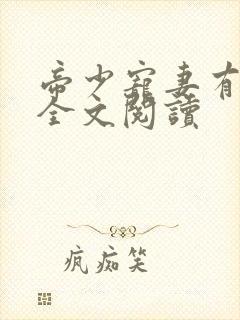 帝少寵妻有
全文閱讀
疯痴笑